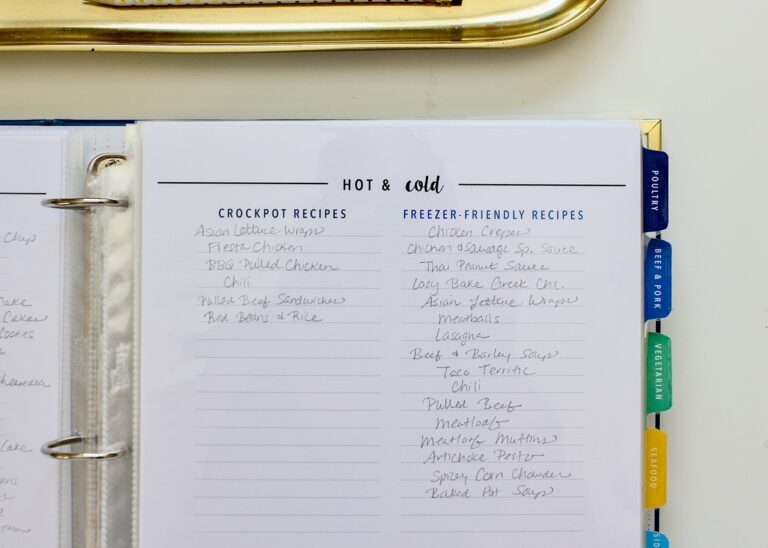 HOT & cold
CROCKPOT RECIPES
Asian Lettuce Wraps
Fiesta Chicken
BBQ Pulled Chicken
Chili
Pulled Beef Sandwiches
Red Beans & Rice
FREEZER-FRIENDLY RECIPES
Chicken Crepes
Chicken & Sausage Sp. Sauce
Thai Peanut Sauce
Lazy Bake Greek Chx.
Asian Lettuce Wraps
Meatballs
Lasagne
Beef & Barley Soup
Taco Terrific
Chili
Pulled Beef
Meatloaf
Meatloaf Muffins
Artichoke Pesto
Spicy Corn Chowder
Baked Pot Soup
POULTRY
BEEF & PORK
VEGETARIAN
SEAFOOD
SID
Chip
Cake
Cakes
Cookies
Cake